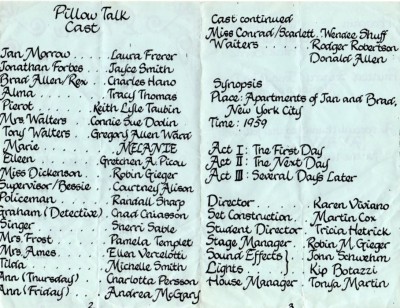 Pillow Talk
Cast
Jan Morrow . . . . Laura Frerer
Jonathan Forbes . . Jayce Smith
Brad Allen/Rex . . Charles Hano
Alma . . . . . Tracy Thomas
Pierot . . . . Keith Lyle Taubin
Mrs Walters . . Connie Sue Doolin
Tony Walters . . Gregory Allen Ward
Marie . . . . MELANIE
Eileen . . . . Gretchen A. Picou
Miss Dickenson . . Robin Gieger
Supervisor/Bessie . . Courtney Alison
Policeman . . . Randall Sharp
Graham (Detective) . . Chad Chiasson
Singer . . . Sherri Sable
Mrs. Frost . . . Pamela Templet
Mrs. Ames . . . Ellen Vercellotti
Tilda . . . Michelle Smith
Ann (Thursday) . . Charlotta Persson
Ann (Friday) . . . Andrea McGary
2
Cast continued
Miss Conrad/Scarlett . Wendee Shuff
Waiters . . . . Rodger Robertson
Donald Allen
Synopsis
Place: Apartments of Jan and Brad,
New York City
Time: 1959
Act I: The First Day
Act II: The Next Day
Act III: Several Days Later
Director . . . . Karen Viviano
Set Construction . . Martin Cox
Student Director . . Tricia Hetrick
Stage Manager . . Robin M. Grieger
Sound Effects} . . John Schwehm
Lights . . . } . Kip Botazzi
House Manager . . Tonya Martin
3